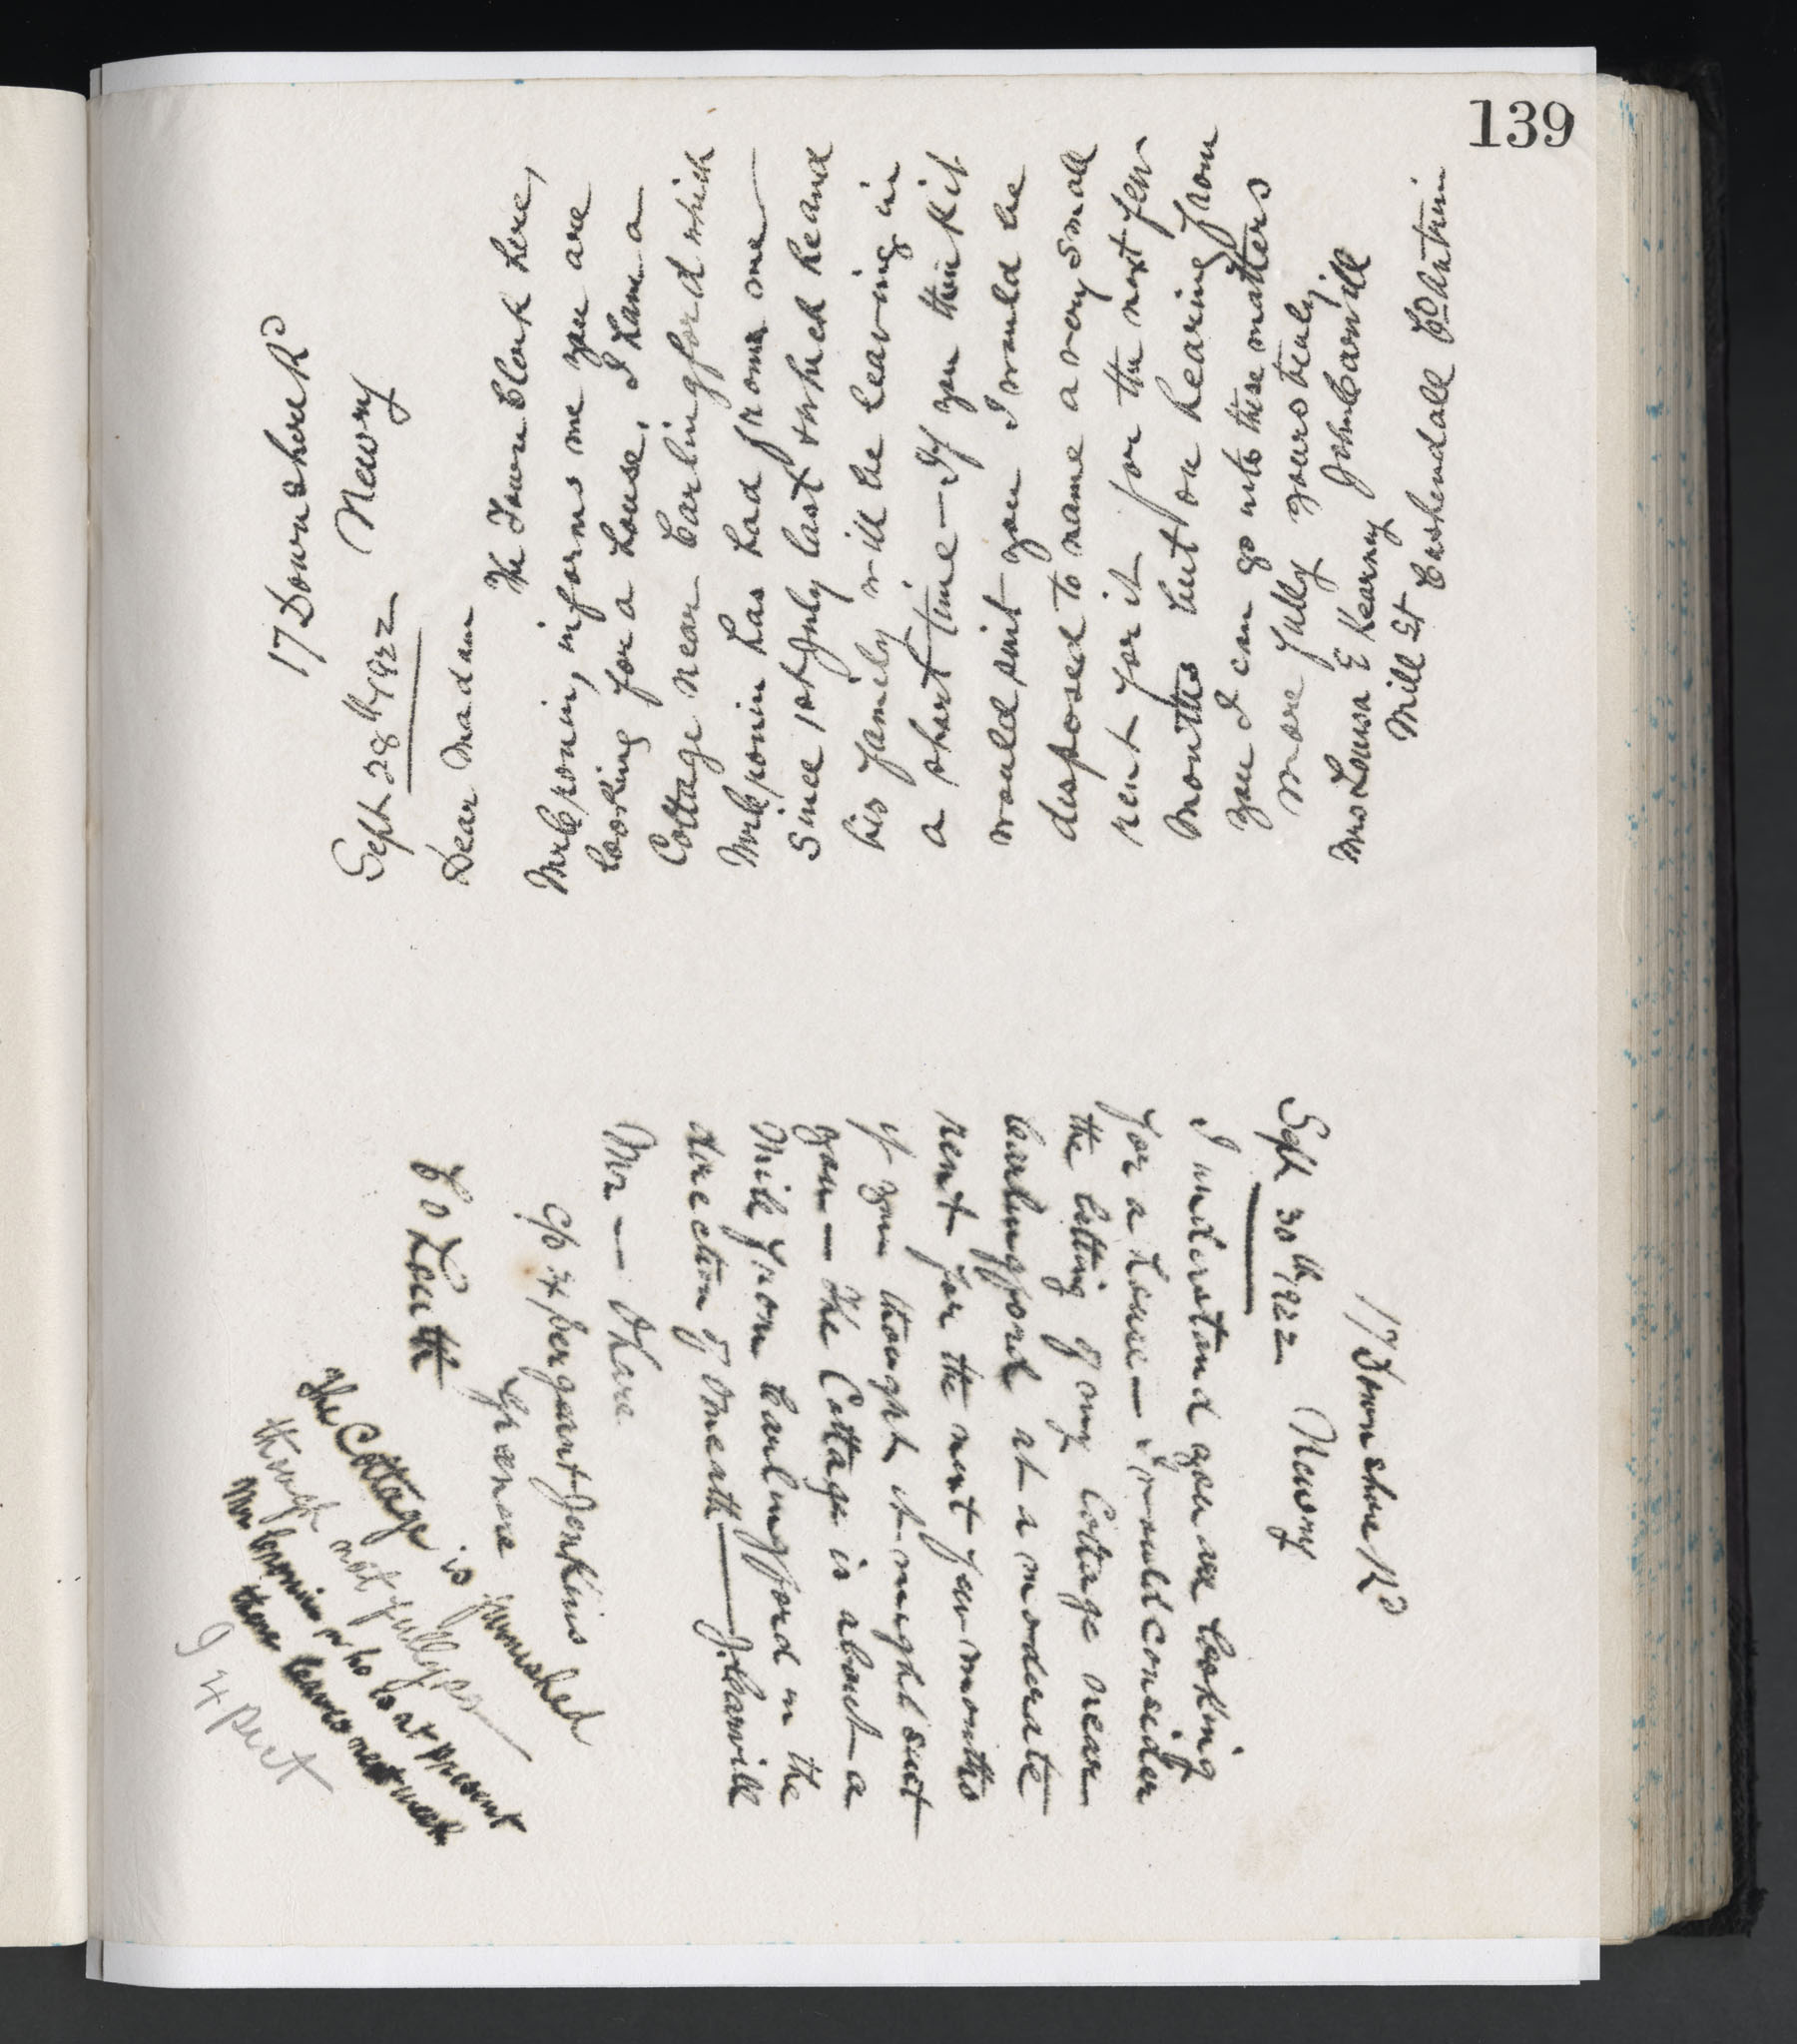 139
17 Downshire Rd
Newry
Sept 28th 1922
Dear Madam
The Town Clerk here,
Mr Cronin, informs me you are
looking for a house. I have a
Cottage near Carlingford which
Mr Cronin has had from me
since 1st July last & which he and
his family will be leaving in
a short time — If you think it
would suit you I would be
disposed to name a very small
rent for it for the next few
months but on hearing from
you I can go into these matters
more fully yours truly
John Carvill
Mrs Louisa E Kearney
Mill St Cushendall Co Antrim
17 Downshire Rd
Sept 30th 1922 Newry
I understand you are looking
for a house — I would consider
the letting of my Cottage near
Carlingford at a moderate
rent for the next few months
if you thought it might suit
you — The Cottage is about a
mile from Carlingford in the
direction of Omeath — J. Carvill
Mr — O'Hare
c/o Sergeant Jenkins
Greenore
Co Louth
The Cottage is furnished
though not fully so —
Mr Cronin who is at present
there leaves next week